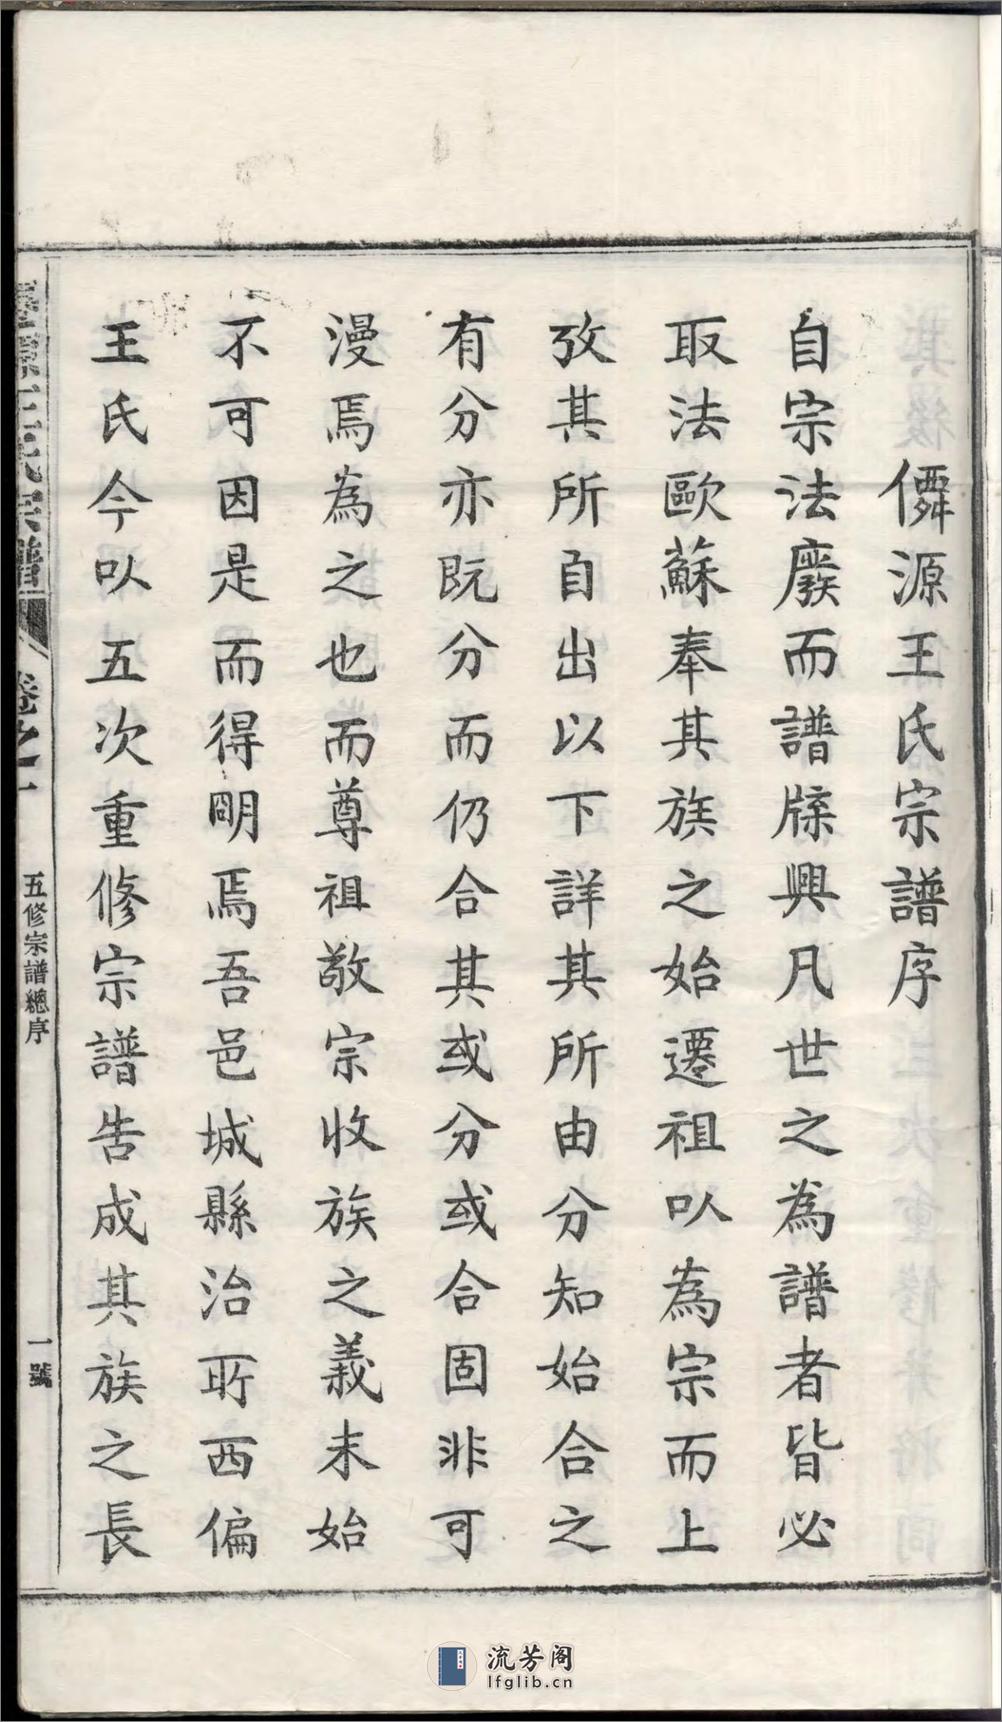 僢源王氏宗譜序
自宗法廢而譜牒興凡世之為譜者皆必
取法歐蘇奉其族之始遷祖以為宗而上
攷其所自出以下詳其所由分知始合之
有分亦既分而仍合其或分或合固非可
漫焉為之也而尊祖敬宗收族之義未始
不可因是而得明焉吾邑城縣治所西偏
王氏今以五次重修宗譜告成其族之長
王氏宗譜 卷之一 五修宗譜總序 一號
流芳阁
lfglib.cn